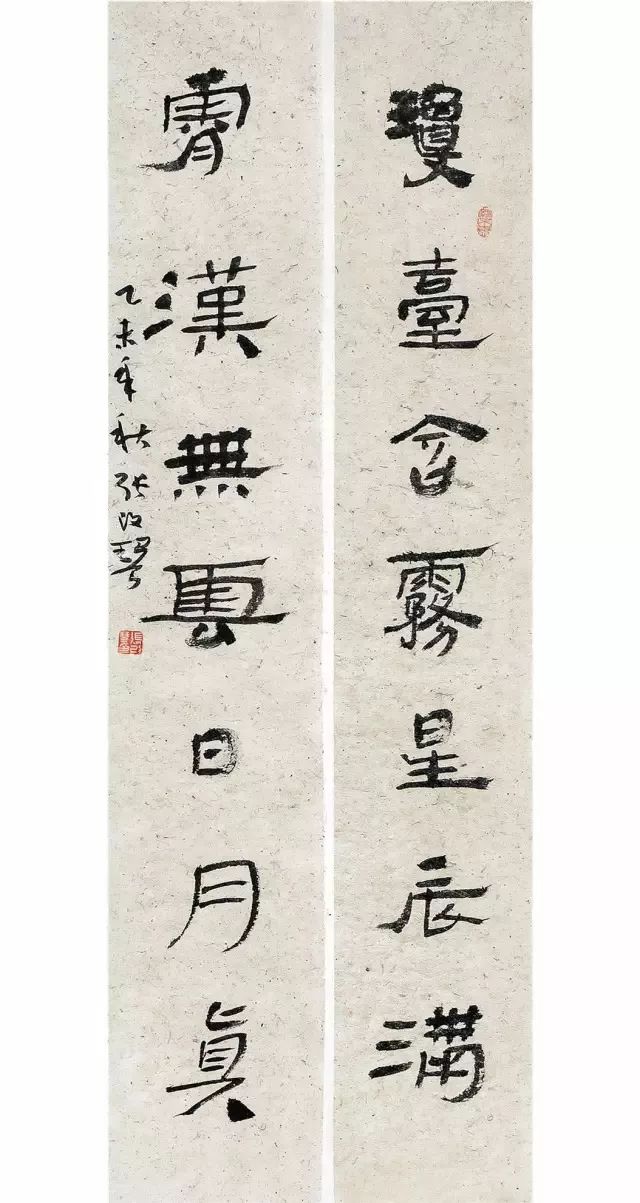 瓊臺含霧星辰滿
霄漢無雲日月眞
乙未年秋张改琴